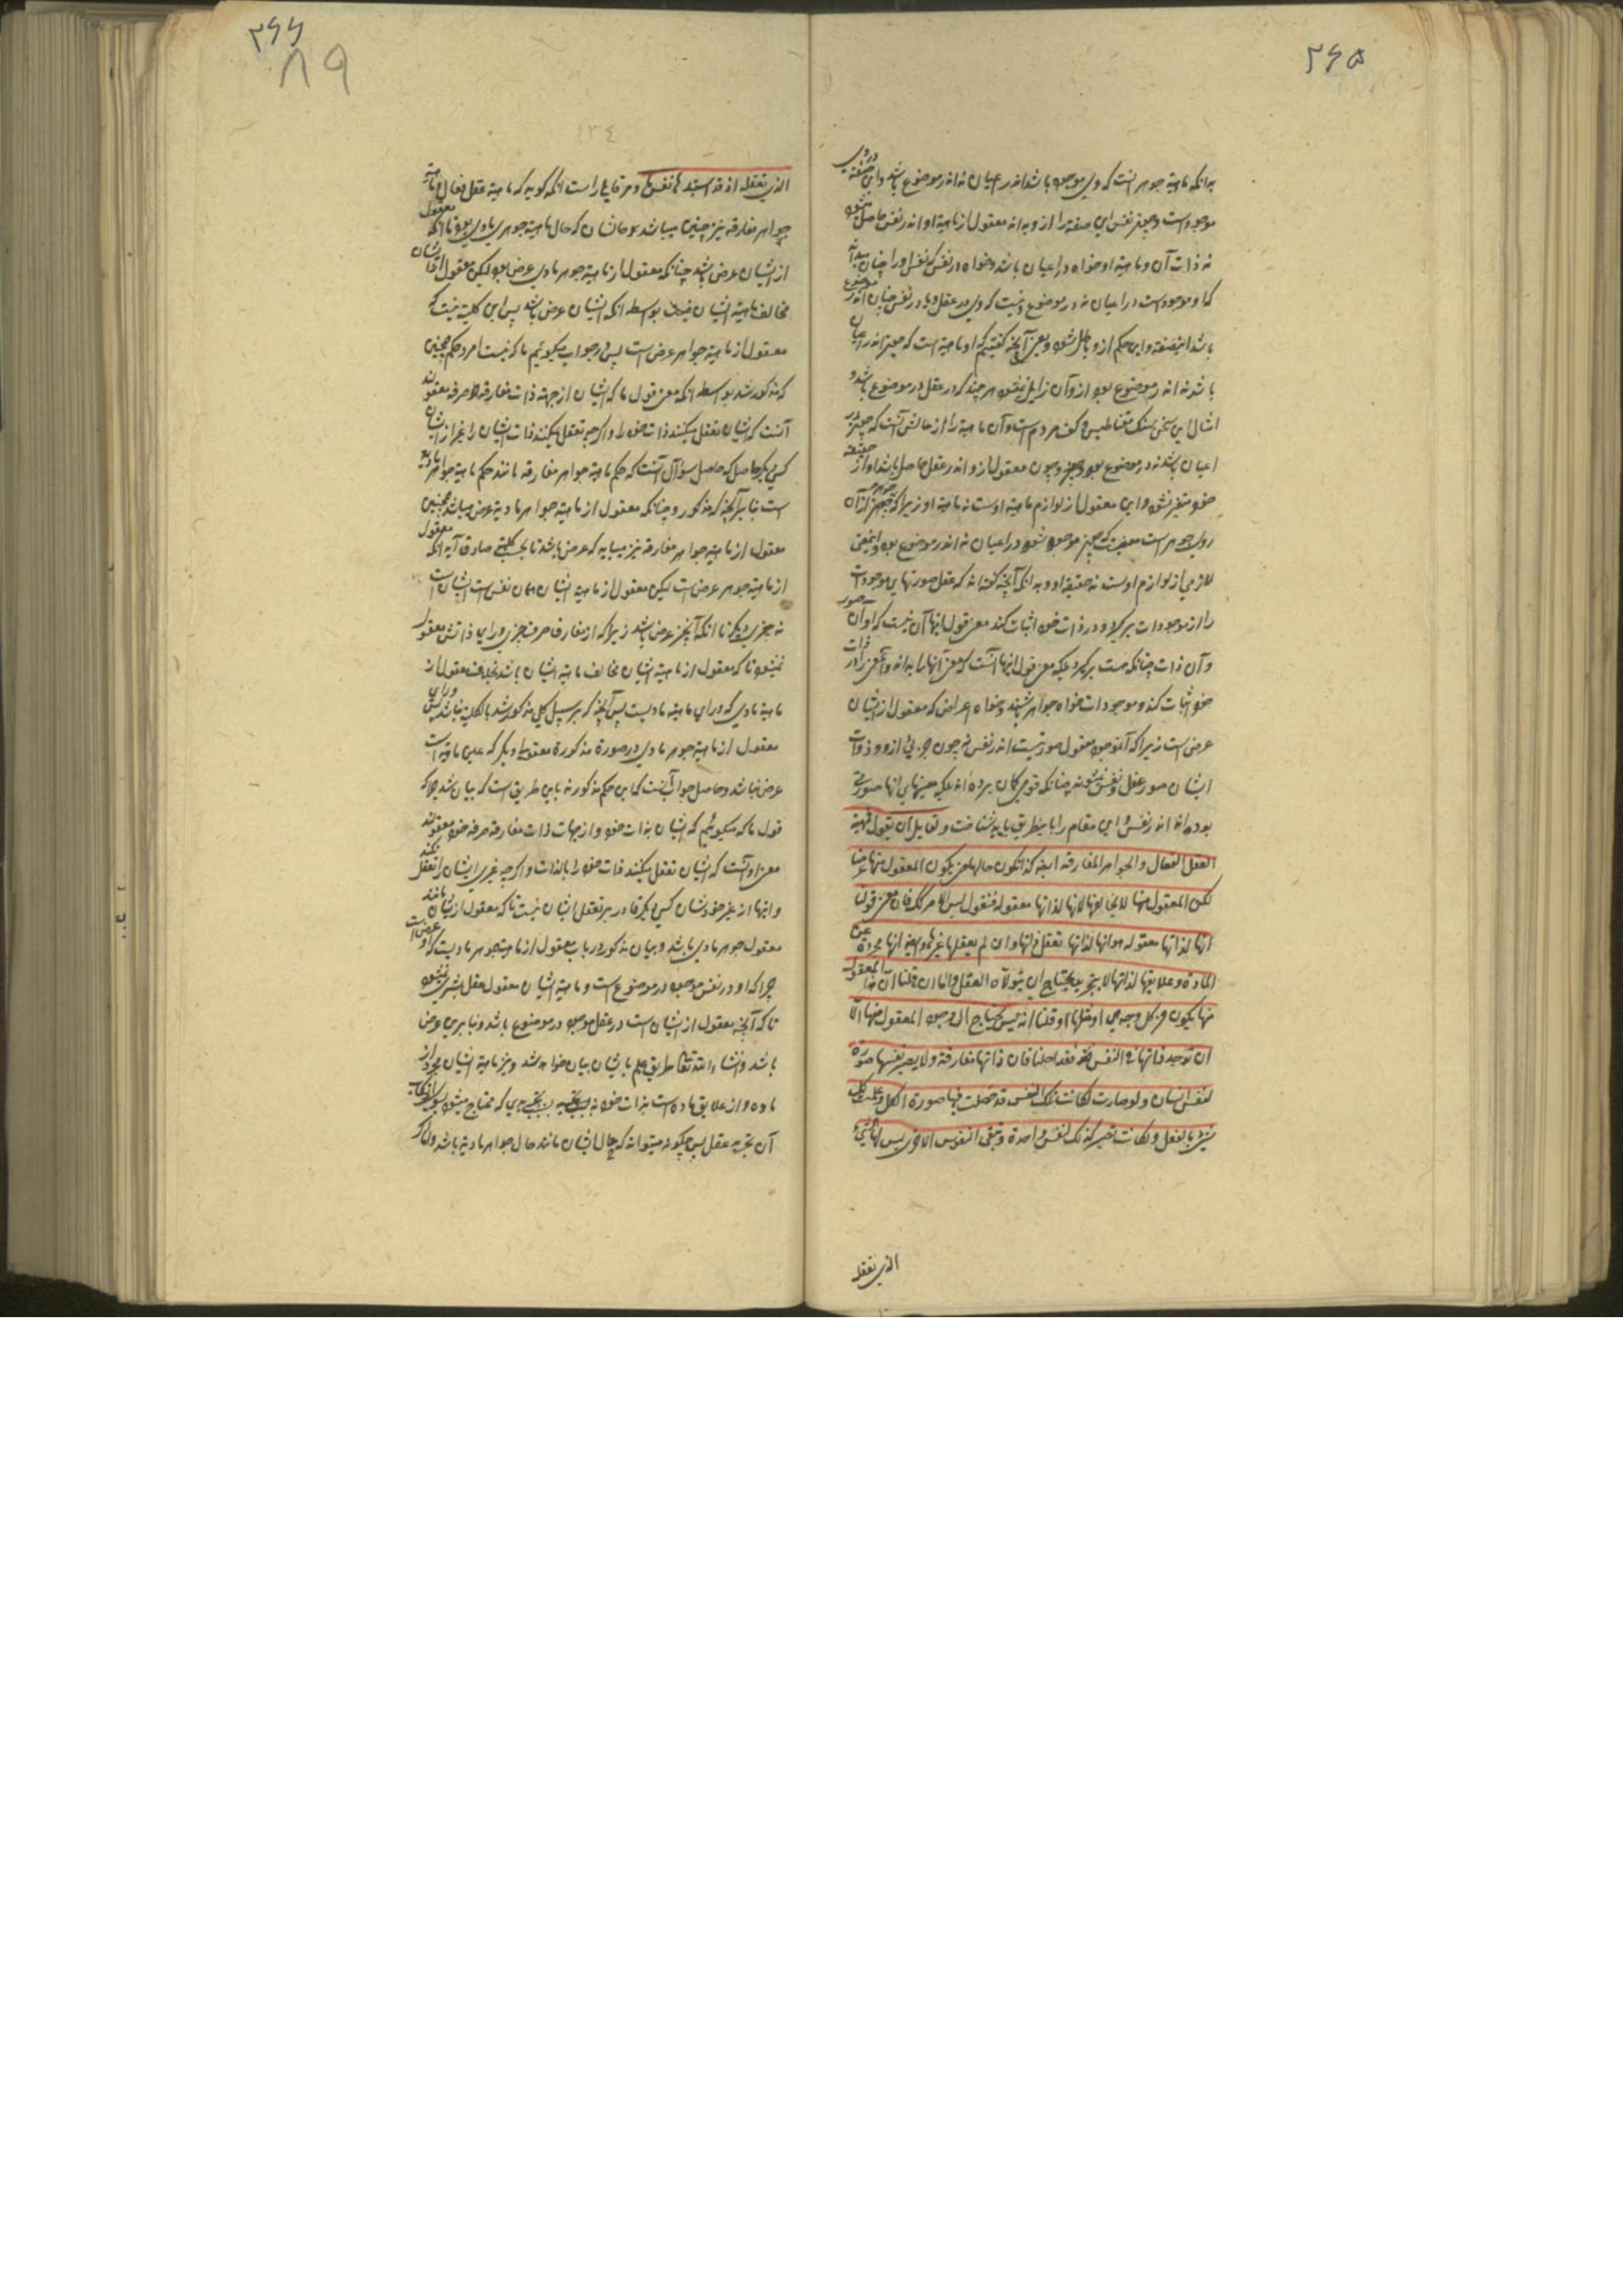 ۲۶۵
بدانکه ماهیة جوهر آنست که وی موجود باشد اندر اعیان نه اندر موضوع باشد و این صفة در وی
موجود است و چیز نفس این صفة را از و بداند معقول از ماهیة او اندر نفس حاصل شود
نه ذات آن و ماهیة او خواه در اعیان باشد و خواه در نفس که نفس او را چنان بداند
که او موجود است در اعیان نه در موضوع و نیست که وی در عقل و یا در نفس چنان اندر موضوع
باشد اینصفة و این حکم از و باطل شود و یعنی آنچه گفتیم که او ماهیة است که چیز اندر اعیان
باشد نه اندر موضوع بود از و آن زایل نشود هر چند که در عقل در موضوع باشد و
مثال این سخن سنک مقناطیس در کف مردم است و آن ماهیة را از حالش آنست که چیز در
اعیان باشد نه در موضوع بود و چون معقول از و اندر عقل حاصل باشد او از حقیقة
خود متغیر نشود و این معقول از لوازم ماهیة اوست نه ماهیة او زیرا که جوهر از آن
روی جوهر است معنیست که چیز موجود شود در اعیان نه اندر موضوع بود و اینمعنی
لازمی از لوازم اوست نه حقیقة او و بدانکه آنچه گفته‌اند که عقل صورتهای موجودات
را از موجودات برگیرد و در ذات خود اثبات کند معنی قول اینها آن نیست که او آن صور
و آن ذات چنانکه هست برگیرد بلکه معنی قول اینها آنست که معنی آنها را بداند و آن معنی را در ذات
خود اثبات کند و موجودات خواه جواهر باشند و خواه اعراض که معقول از ایشان
عرض است زیرا که آنموجود معقول صورتیست اندر نفس نه چون جزئی از و و ذوات
ایشان صور عقل و نفس نشوند چنانکه قومی گمان برده‌اند بلکه معنیهای آنها صورتی
بوده‌اند اندر نفس و این مقام را باینطریق باید شناخت و لقایل ان یقول فهیة
العقل الفعال و الجواهر المفارقه ایضا کذا تکون حالها حتی یکون المعقول منها عرضا
لکن المعقول منها لا یخالفها لانها لذاتها معقوله فنقول لیس الامر کک فان معنی قولنا
انها لذاتها معقوله هو انها لذاتها تعقل ذاتها و ان لم یعقلها غیرها و ایضا انها مجردة عن
المادة و علایقها لذاتها لا بتجرید یحتاج ان یتولاه العقل و اما ان قلنا ان هذا المعقول
منها یکون من کل وجه هی او مثلها او قلنا انه لیس یحتاج الی وجود المعقول منها الا
ان توجد ذاتها فی النفس فقد احلنا فان ذاتها مفارقة و لا یصیر نفسها صورة
لنفس انسان و لو صارت لکانت تلک النفس قد حصلت فیها صورة الکل و علمت کل
شیء بالفعل و لکانت تصیر کذلک لنفس واحدة و تبقی النفوس الاخری لیس لها الشیء
الذی تعقله
۲۶۶
۸۹
۱۳٤
الذی تعقله اذ قد استبد بها نفس ما و مر قایلی را است انکه گوید که ماهیة عقل فعال و ماهیة
جواهر مفارقه نیز چنین میباشد و حالشان که حال ماهیة جوهری مادی بود تا آنکه معقول
از ایشان عرض باشد چنانکه معقول از ماهیة جوهر مادی عرض بود لیکن معقول از ایشان
مخالف ماهیة ایشان نیست بواسطه انکه ایشان عرض باشد پس این کلیة نیست که
معقول از ماهیة جواهر عرض است پس در جواب میگوئیم ما که نیست امر و حکم همچنین
که مذکور شد بواسطه انکه معنی قول ما که ایشان از جهة ذات مفارقة صرفه معقولند
آنست که ایشان تعقل میکنند ذات خود را و اگر چه تعقل نکنند ذات ایشان را غیر از ایشان
کسی دیگر حاصل که حاصل سؤال آنست که حکم ماهیة جواهر مفارقه مانند حکم ماهیة جواهر مادیه
است بنا بر آنچه که مذکور و چنانکه معقول از ماهیة جواهر مادیه عرض میباشد همچنین
معقول از ماهیة جواهر مفارقه نیز میباید که عرض باشد تا بحسب کلیة صادق آید انکه معقول
از ماهیة جوهر عرض است لیکن معقول از ماهیة ایشان همان نفس است ایشان است
نه چیزی دیگر تا انکه آنچیز عرض باشد زیرا که از مفارق صرف چیزی ورای ذاتش معقول
نمیشود تا که معقول از ماهیة ایشان مخالف ماهیة ایشان باشد بخلاف معقول از
ماهیة مادی که ورای ماهیة مادیست پس آنچه که بر سبیل کلی مذکور شد بالکلیة نباشد پس ورای
معقول از ماهیة جوهر مادی در صورة مذکوره معقول دیگر که عین ماهیة است
عرض نباشد و حاصل جواب آنست که این حکم مذکور نه باین طریق است که بیان شد چرا که
قول ما که میگوئیم که ایشان بذات خود و از جهات ذات مفارقه صرفه خود معقولند
معنی او آنست که ایشان تعقل میکنند ذات خود را بالذات و اگر چه غیری ایشان را تعقل نکند
و اینها از غیر خودشان کسی دیگر قادر بر تعقل ایشان نیست تا که معقول از ایشان مانند
معقول جوهر مادی باشد و بیان مذکور در باب معقول از ماهیة جوهر مادیست که او عرض است
چرا که او در نفس موجود در موضوع است و ماهیة ایشان معقول عقل بشری نمیشود
تا که آنچه معقول از ایشان است در عقل موجود در موضوع باشد و بنا برین عرض
باشد و انشاء الله تعالی طریق علم بایشان بیان خواهد شد و نیز ماهیة ایشان مجرد از
ماده و از علایق ماده است بذات خود نه بسبب تجریدی که محتاج میشود بسوی ارتکاب
آن تجرید عقل پس چگونه میتواند که حال ایشان مانند حال جواهر مادیة باشد و اگر